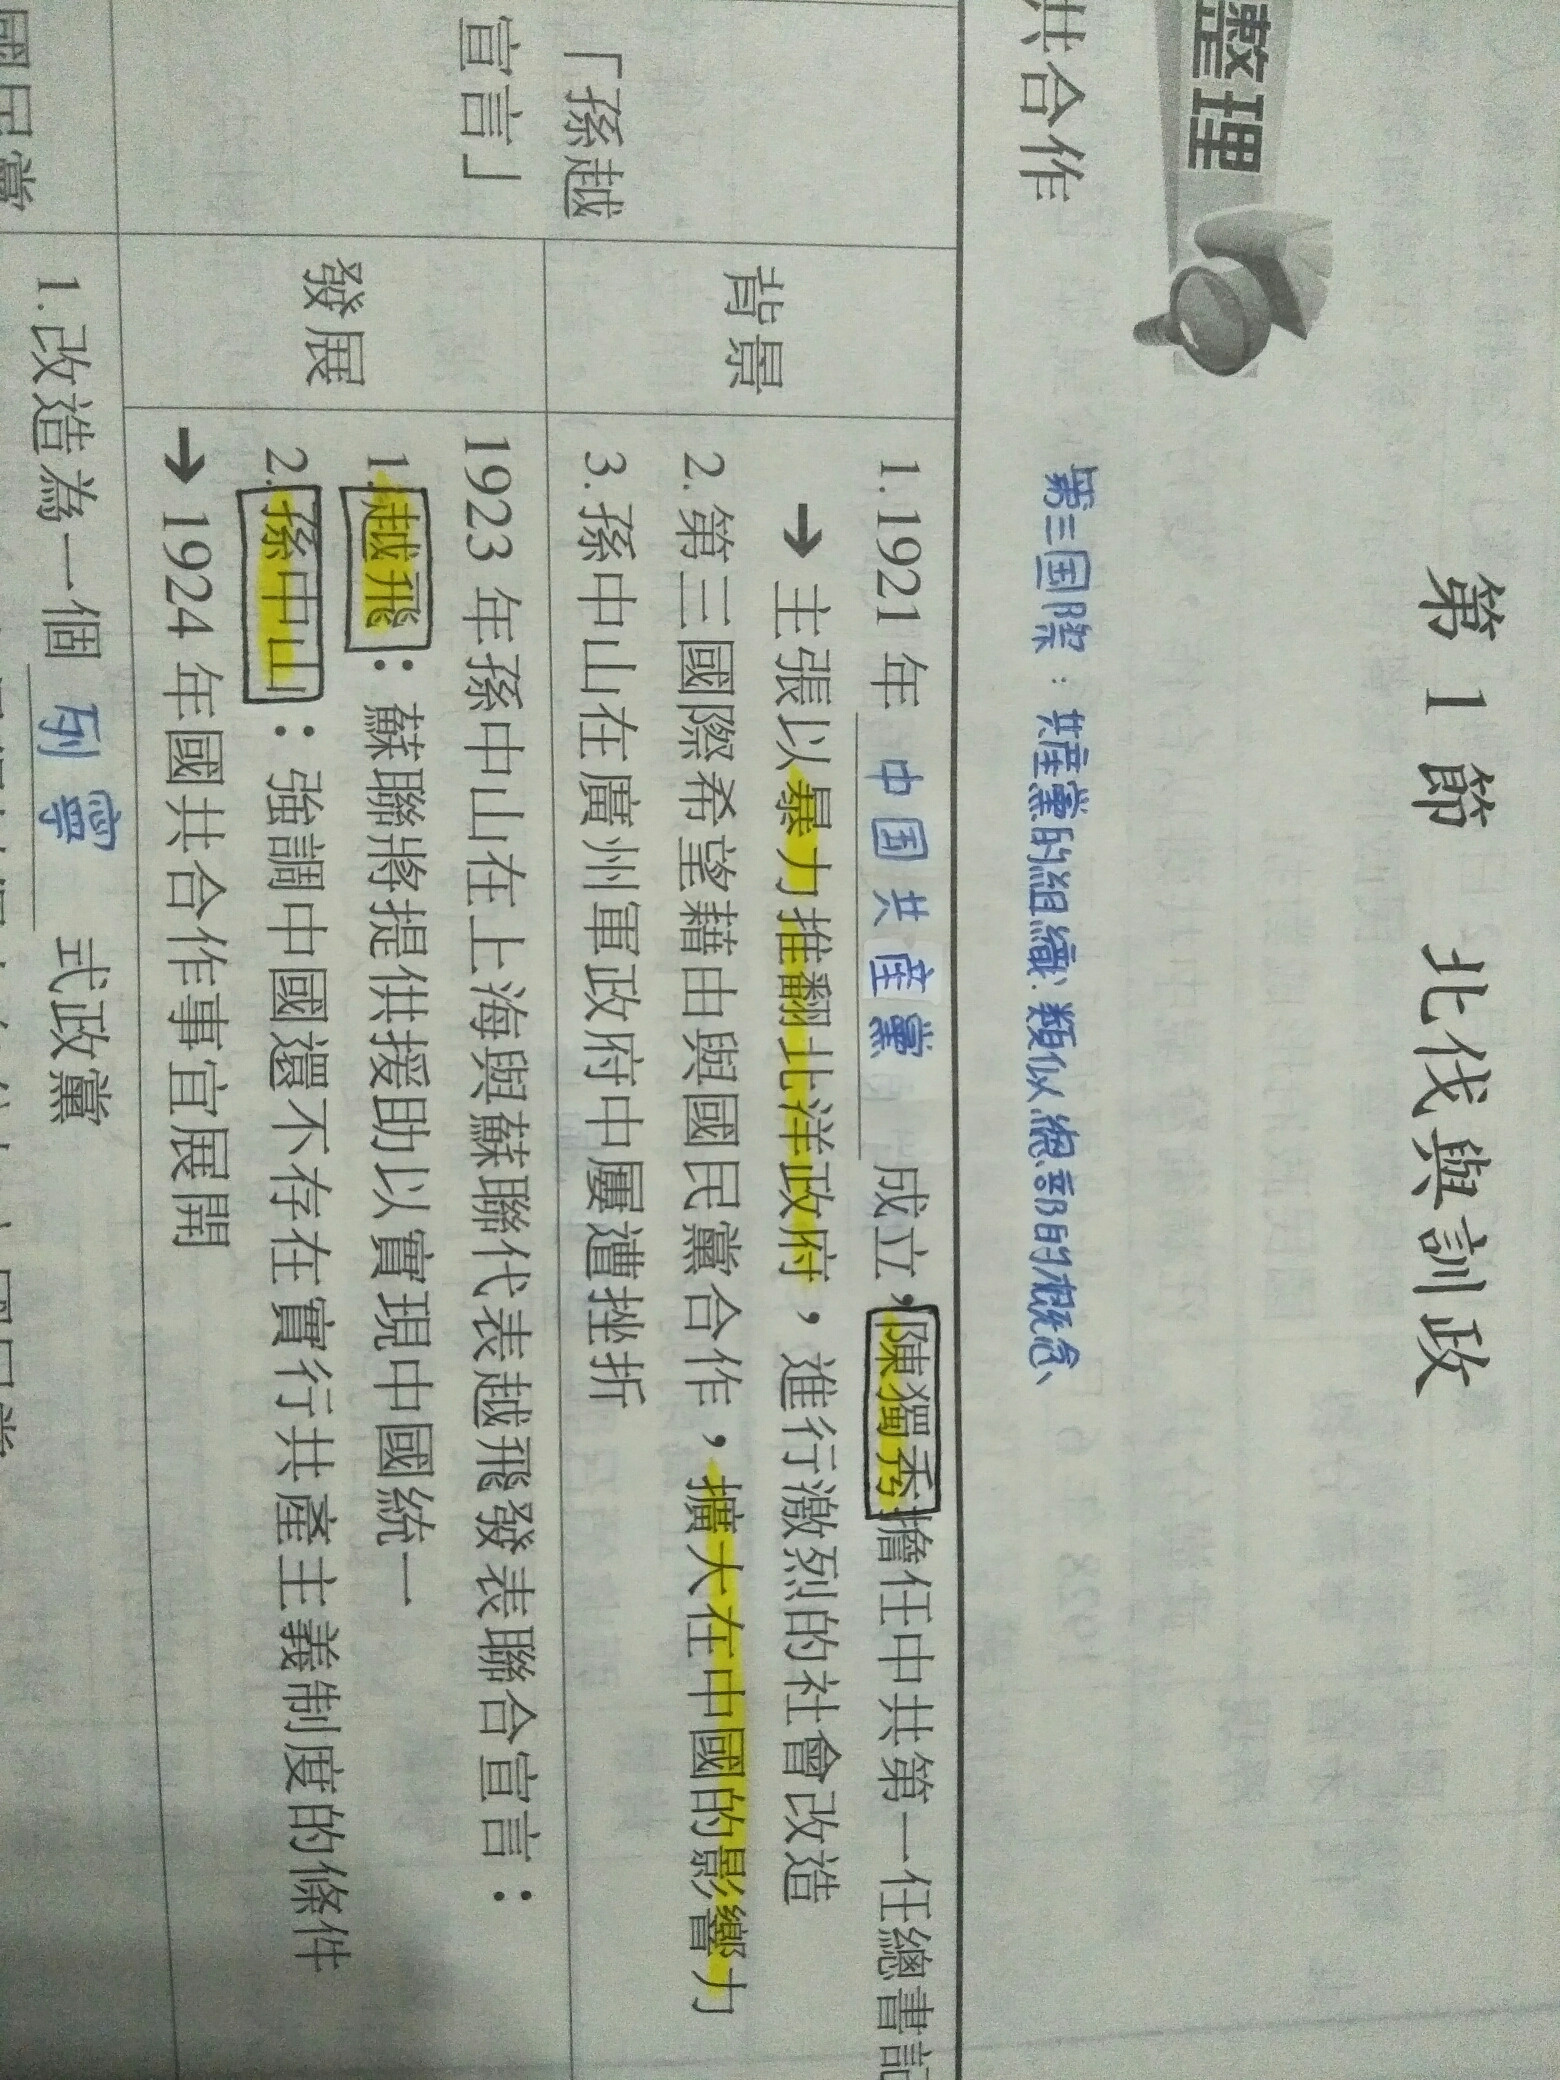 第1節 北伐與訓政
整理
共合作
第三国際：共産黨的組織.類似總部的概念
「孫越
宣言」
背景
1.1921年 中国共産黨 成立，陳獨秀擔任中共第一任總書記
→主張以暴力推翻北洋政府，進行激烈的社會改造
2.第三國際希望藉由與國民黨合作，擴大在中國的影響力
3.孫中山在廣州軍政府中屢遭挫折
發展
1923年孫中山在上海與蘇聯代表越飛發表聯合宣言：
1.越飛：蘇聯將提供援助以實現中國統一
2.孫中山：強調中國還不存在實行共產主義制度的條件
→1924年國共合作事宜展開
國民黨
1.改造為一個 列寧 式政黨